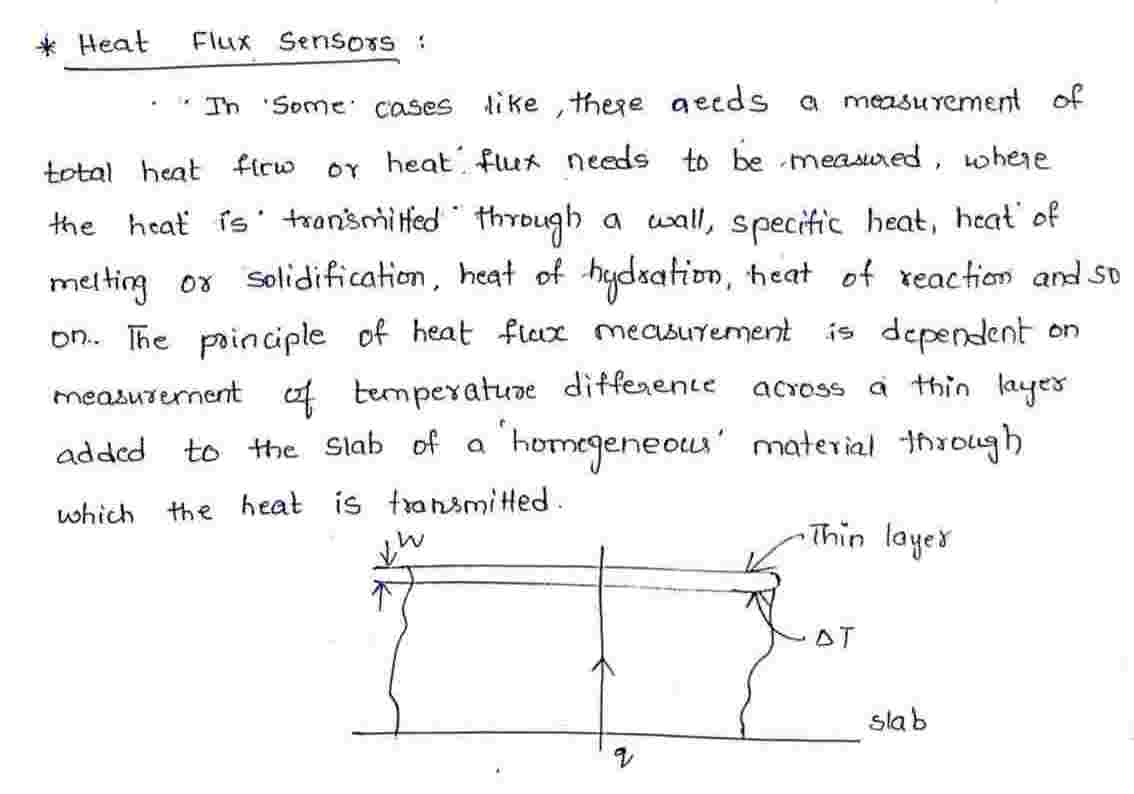 * Heat Flux Sensors :
In some cases like, there needs a measurement of
total heat flow or heat flux needs to be measured, where
the heat is transmitted through a wall, specific heat, heat of
melting or solidification, heat of hydration, heat of reaction and so
on.. The principle of heat flux measurement is dependent on
measurement of temperature difference across a thin layer
added to the slab of a 'homogeneous' material through
which the heat is transmitted.
W
Thin layer
ΔT
slab
q